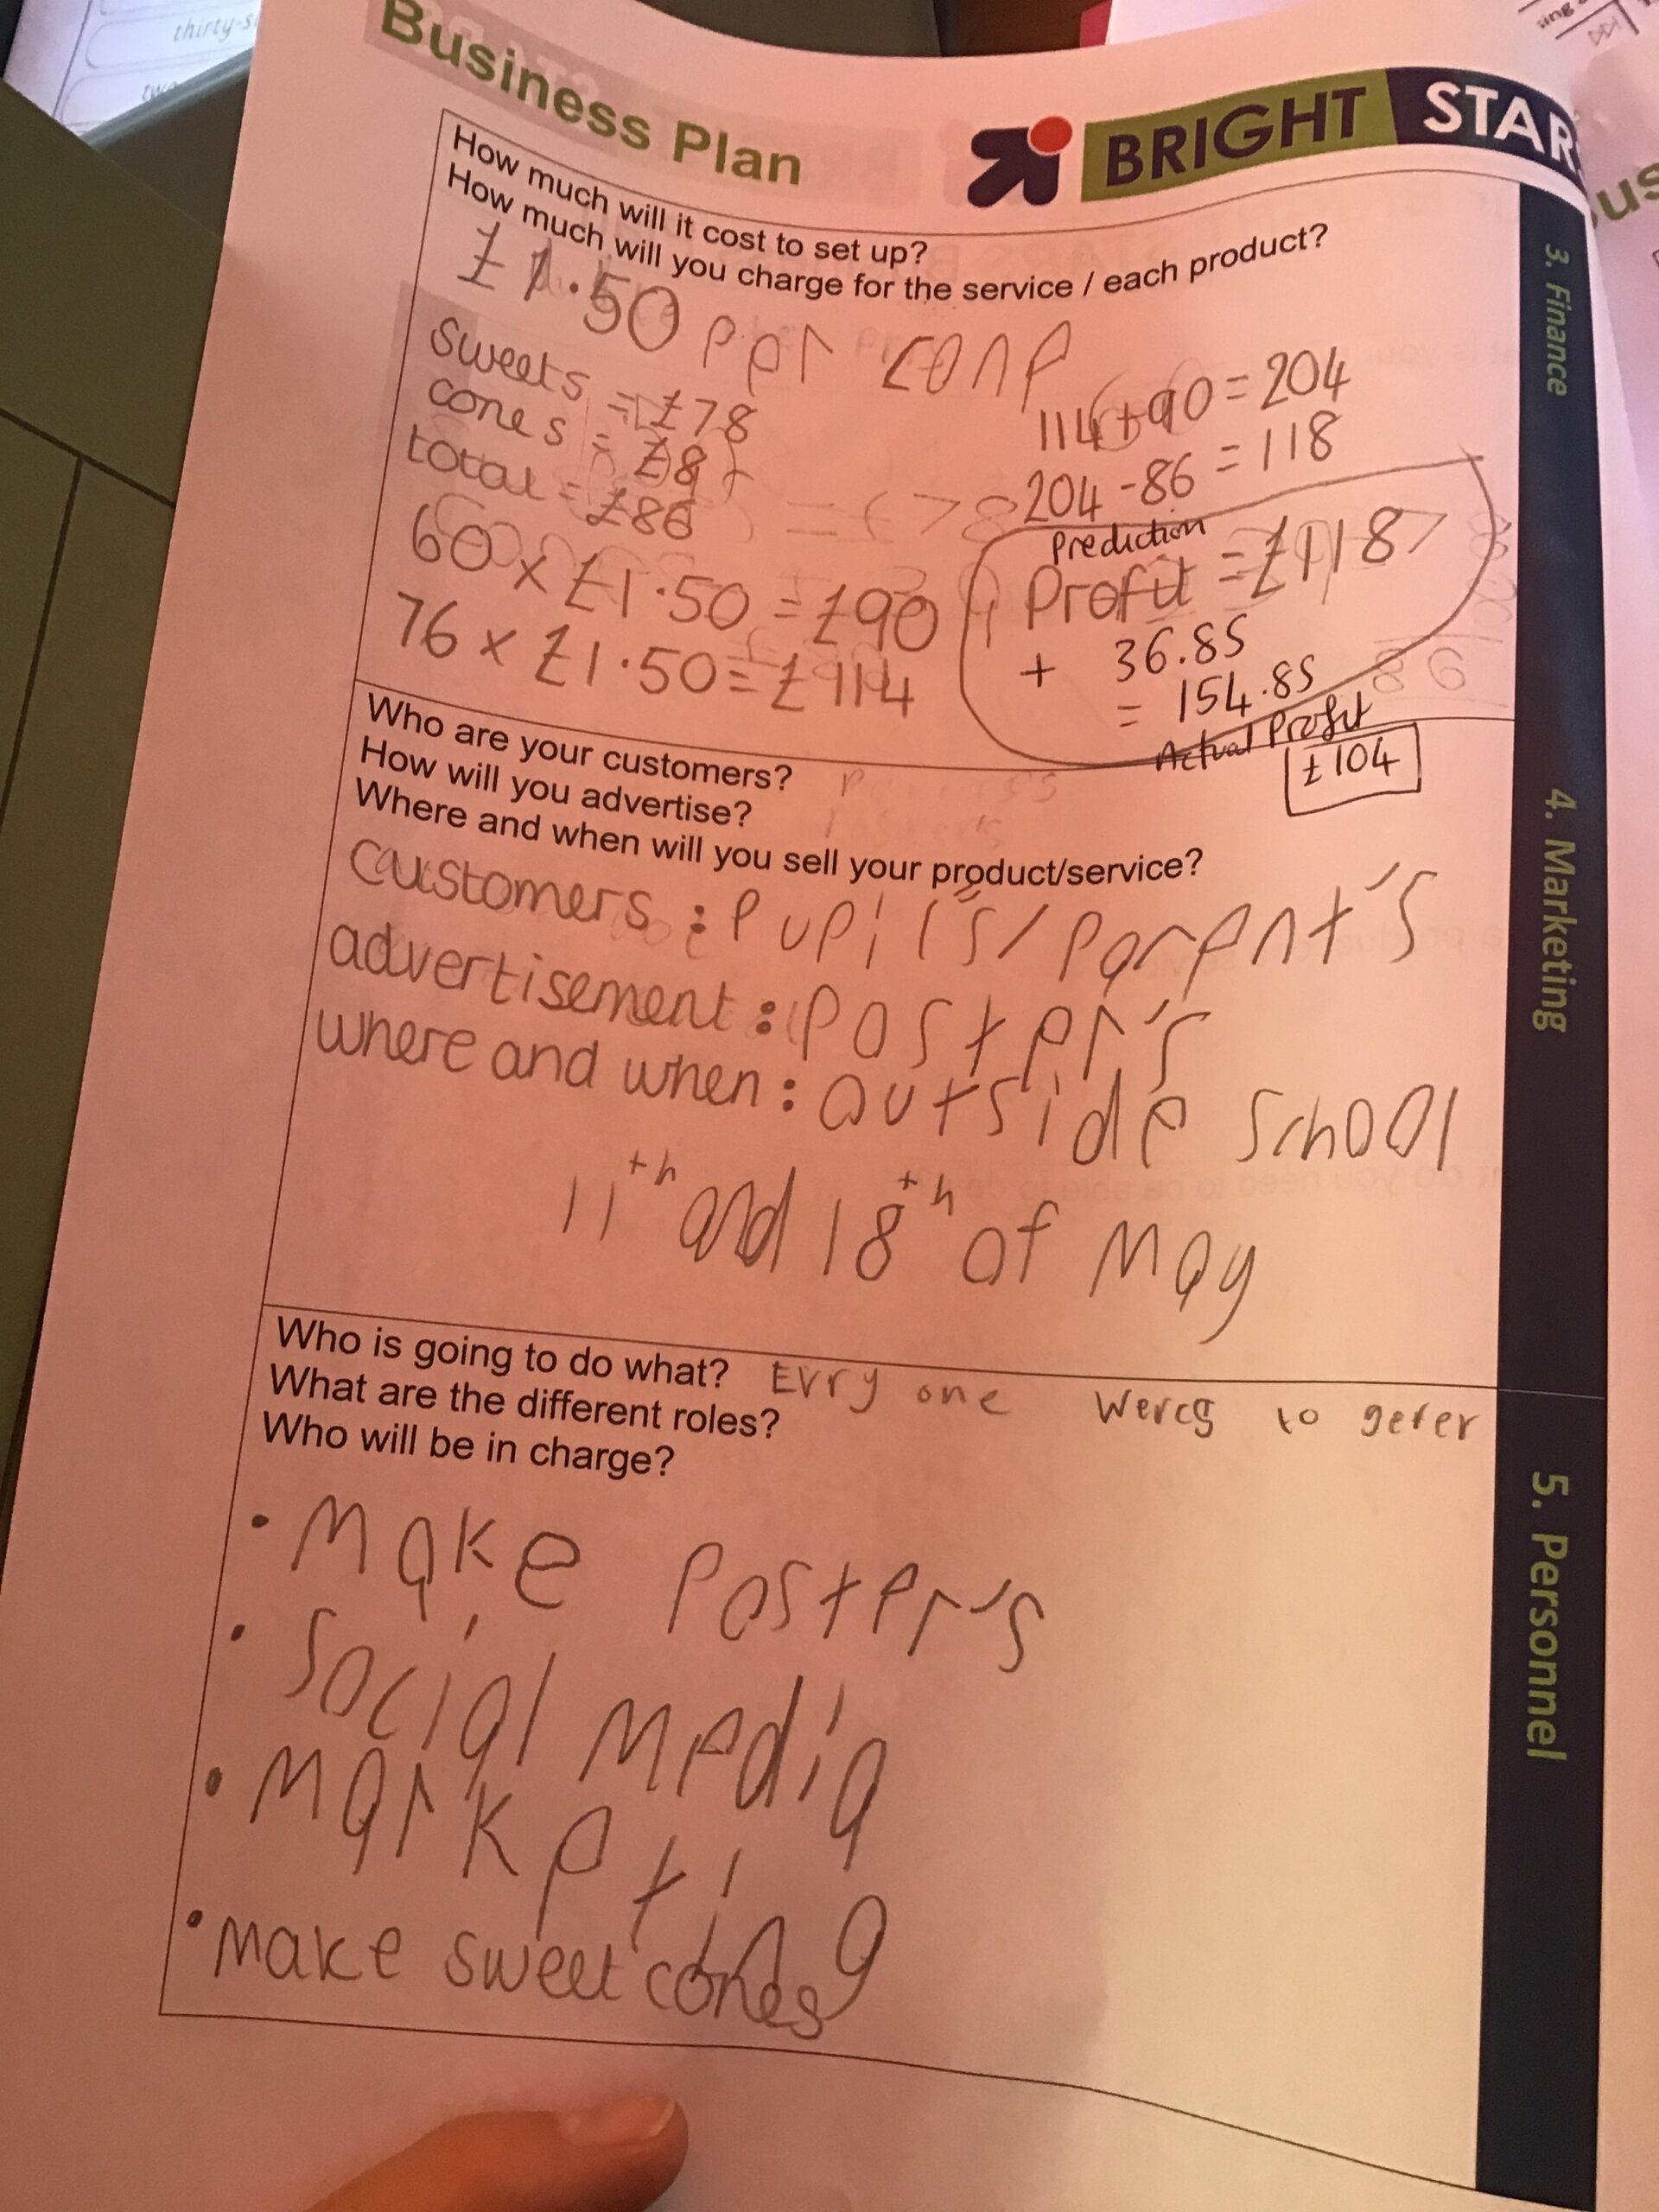 thirty-si
two
ing
Business Plan
BRIGHT STAR
us
How much will it cost to set up?
How much will you charge for the service / each product?
£1.50 per cone
sweets = £78
cones = £8
total = £86
60 x £1.50 = £90
76 x £1.50 = £114
114+90=204
204-86=118
Prediction
Profit = £118
+ 36.85
= 154.85
Actual Profit
£104
3. Finance
Who are your customers?
How will you advertise?
Where and when will you sell your product/service?
customers : Pupil's/parent's
advertisement : poster's
where and when : outside school
11th and 18th of May
4. Marketing
Who is going to do what? Evry one wercs to geter
What are the different roles?
Who will be in charge?
• Make Poster's
• Social Media
• Marketing
• make sweet cones
5. Personnel